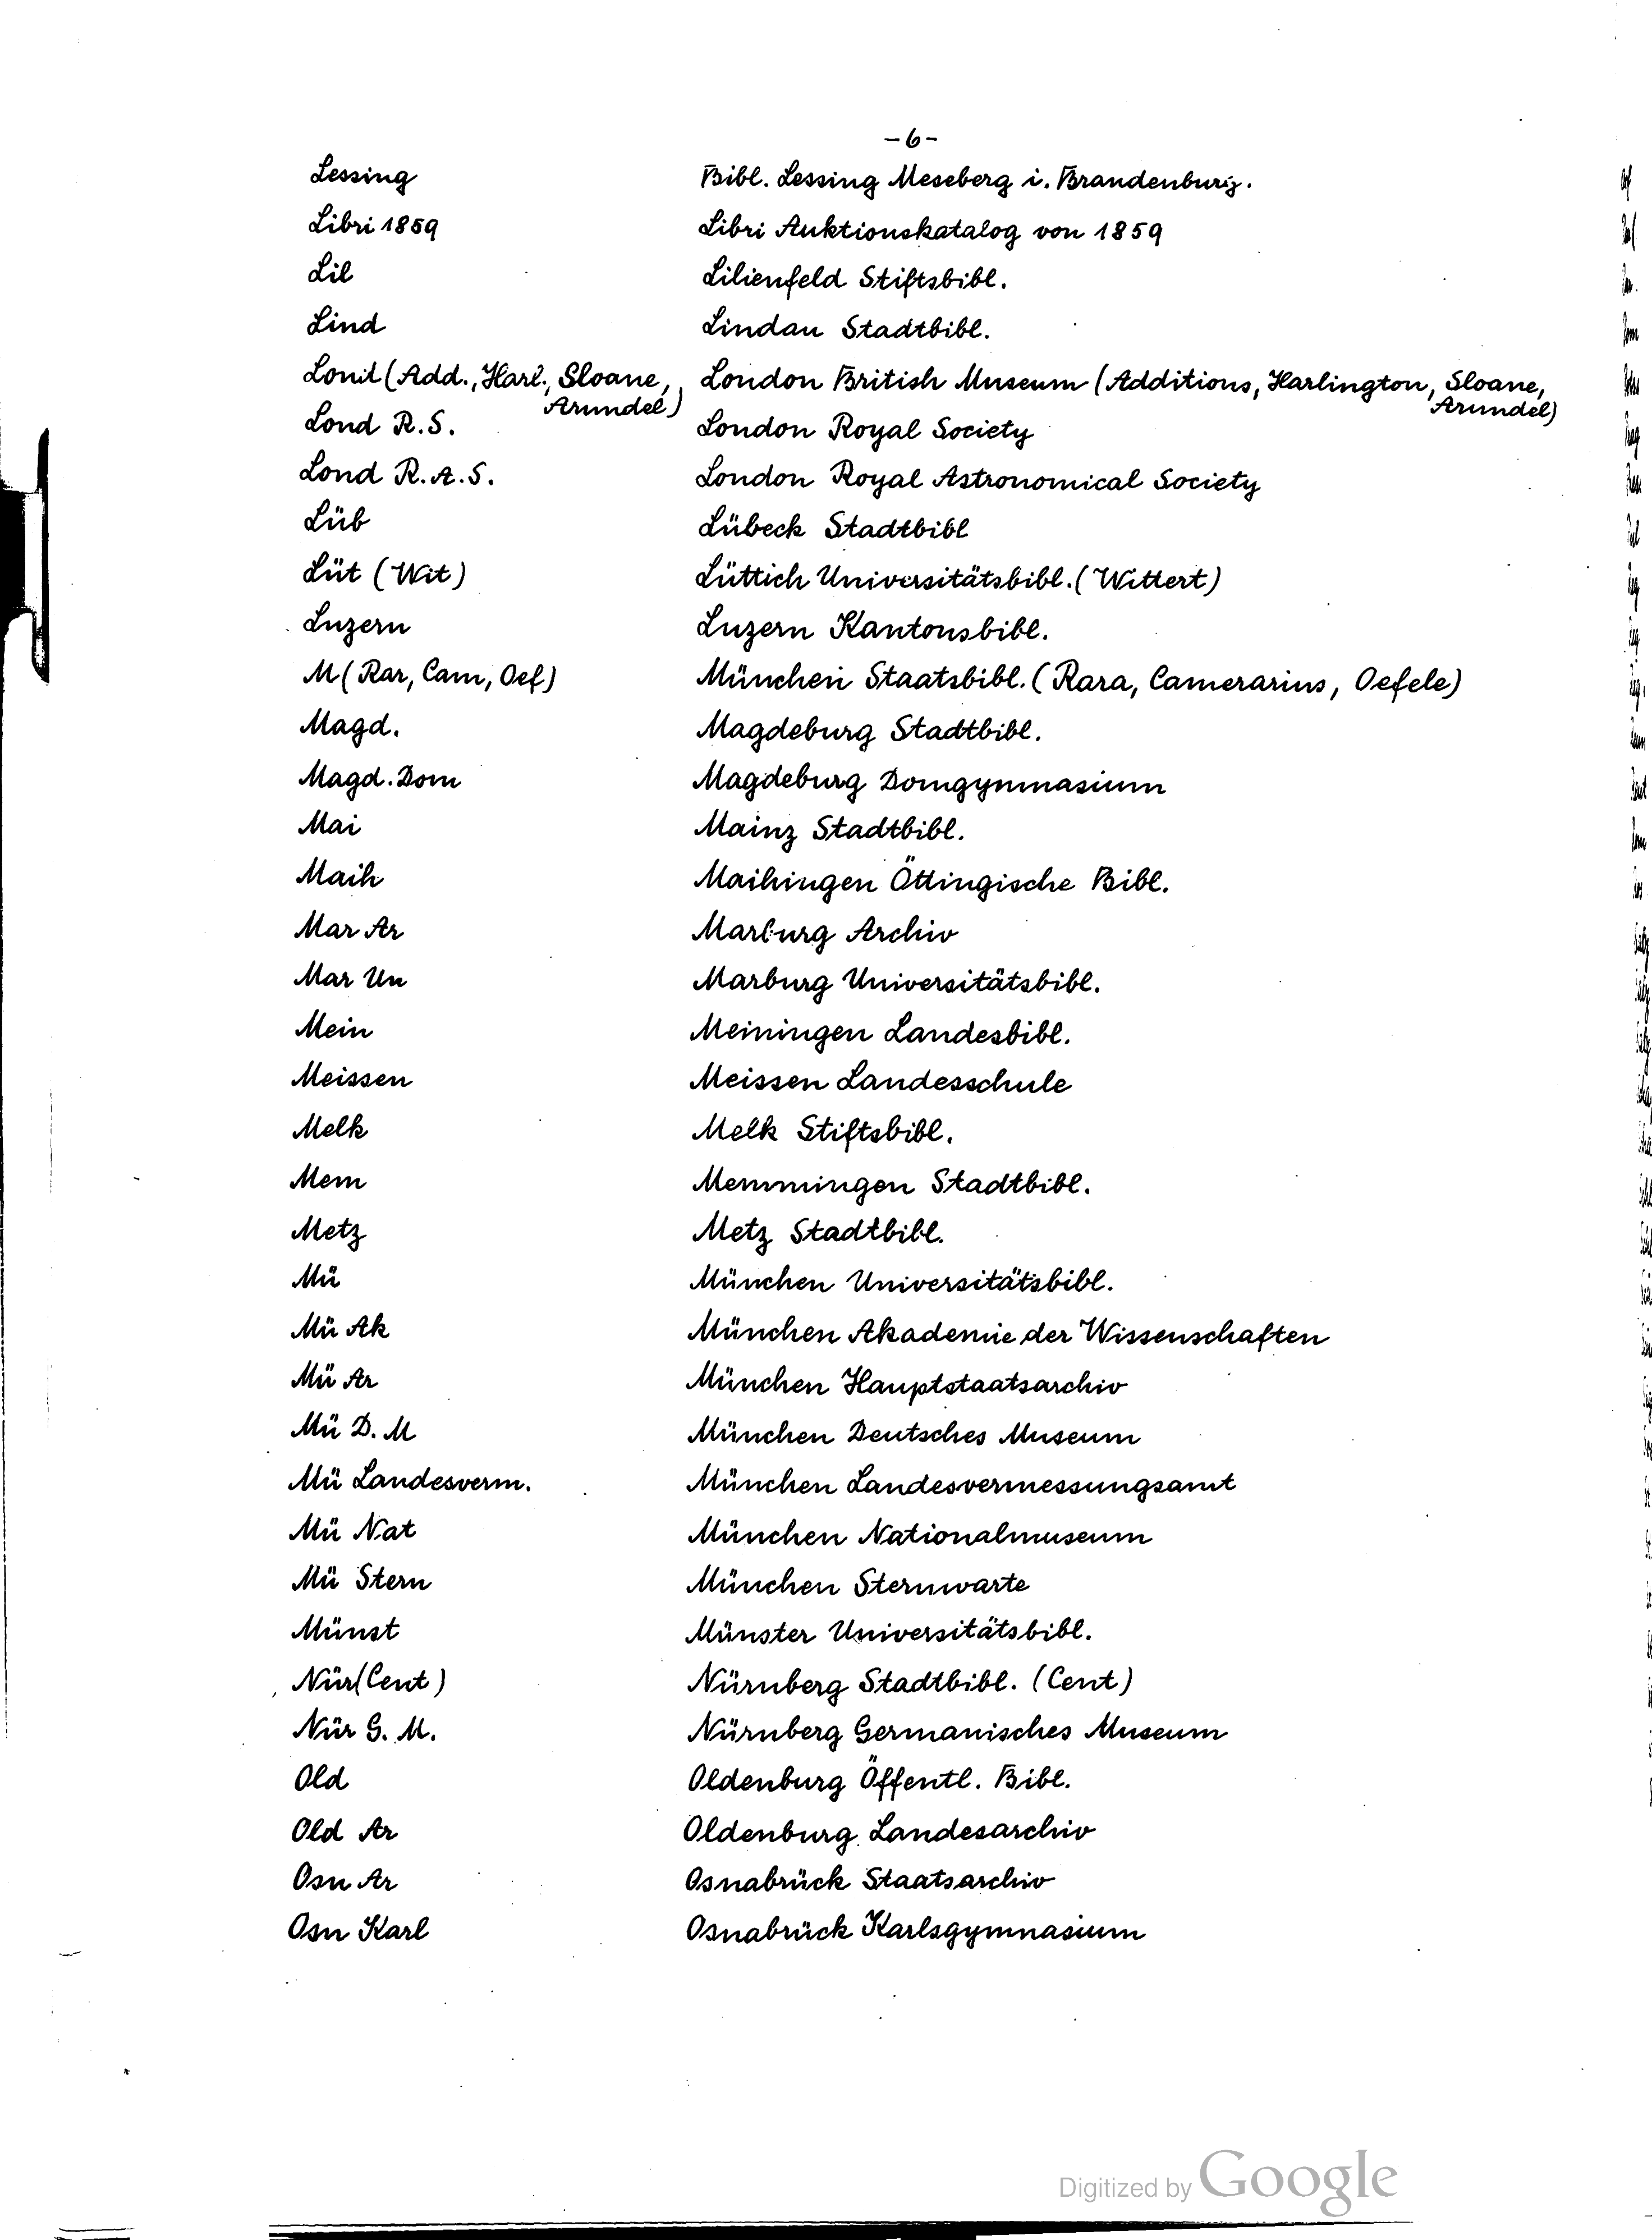 -6-
Lessing Bibl. Lessing Meseberg i. Brandenburg.
Libri 1859 Libri Auktionskatalog von 1859
Lil Lilienfeld Stiftsbibl.
Lind Lindau Stadtbibl.
Lond (Add., Harl., Sloane, London British Museum (Additions, Harlington, Sloane,
Arundel) Arundel)
Lond R.S. London Royal Society
Lond R.A.S. London Royal Astronomical Society
Lüb Lübeck Stadtbibl
Lüt (Wit) Lüttich Universitätsbibl. (Wittert)
Luzern Luzern Kantonsbibl.
M (Rar, Cam, Oef) München Staatsbibl. (Rara, Camerarius, Oefele)
Magd. Magdeburg Stadtbibl.
Magd. Dom Magdeburg Domgymnasium
Mai Mainz Stadtbibl.
Maih Maihingen Öttingische Bibl.
Mar Ar Marburg Archiv
Mar Un Marburg Universitätsbibl.
Mein Meiningen Landesbibl.
Meissen Meissen Landesschule
Melk Melk Stiftsbibl.
Mem Memmingen Stadtbibl.
Metz Metz Stadtbibl.
Mü München Universitätsbibl.
Mü Ak München Akademie der Wissenschaften
Mü Ar München Hauptstaatsarchiv
Mü D. M München Deutsches Museum
Mü Landesverm. München Landesvermessungsamt
Mü Nat München Nationalmuseum
Mü Stern München Sternwarte
Münst Münster Universitätsbibl.
Nür (Cent) Nürnberg Stadtbibl. (Cent)
Nür G. M. Nürnberg Germanisches Museum
Old Oldenburg Öffentl. Bibl.
Old Ar Oldenburg Landesarchiv
Osn Ar Osnabrück Staatsarchiv
Osn Karl Osnabrück Karlsgymnasium
Digitized by Google